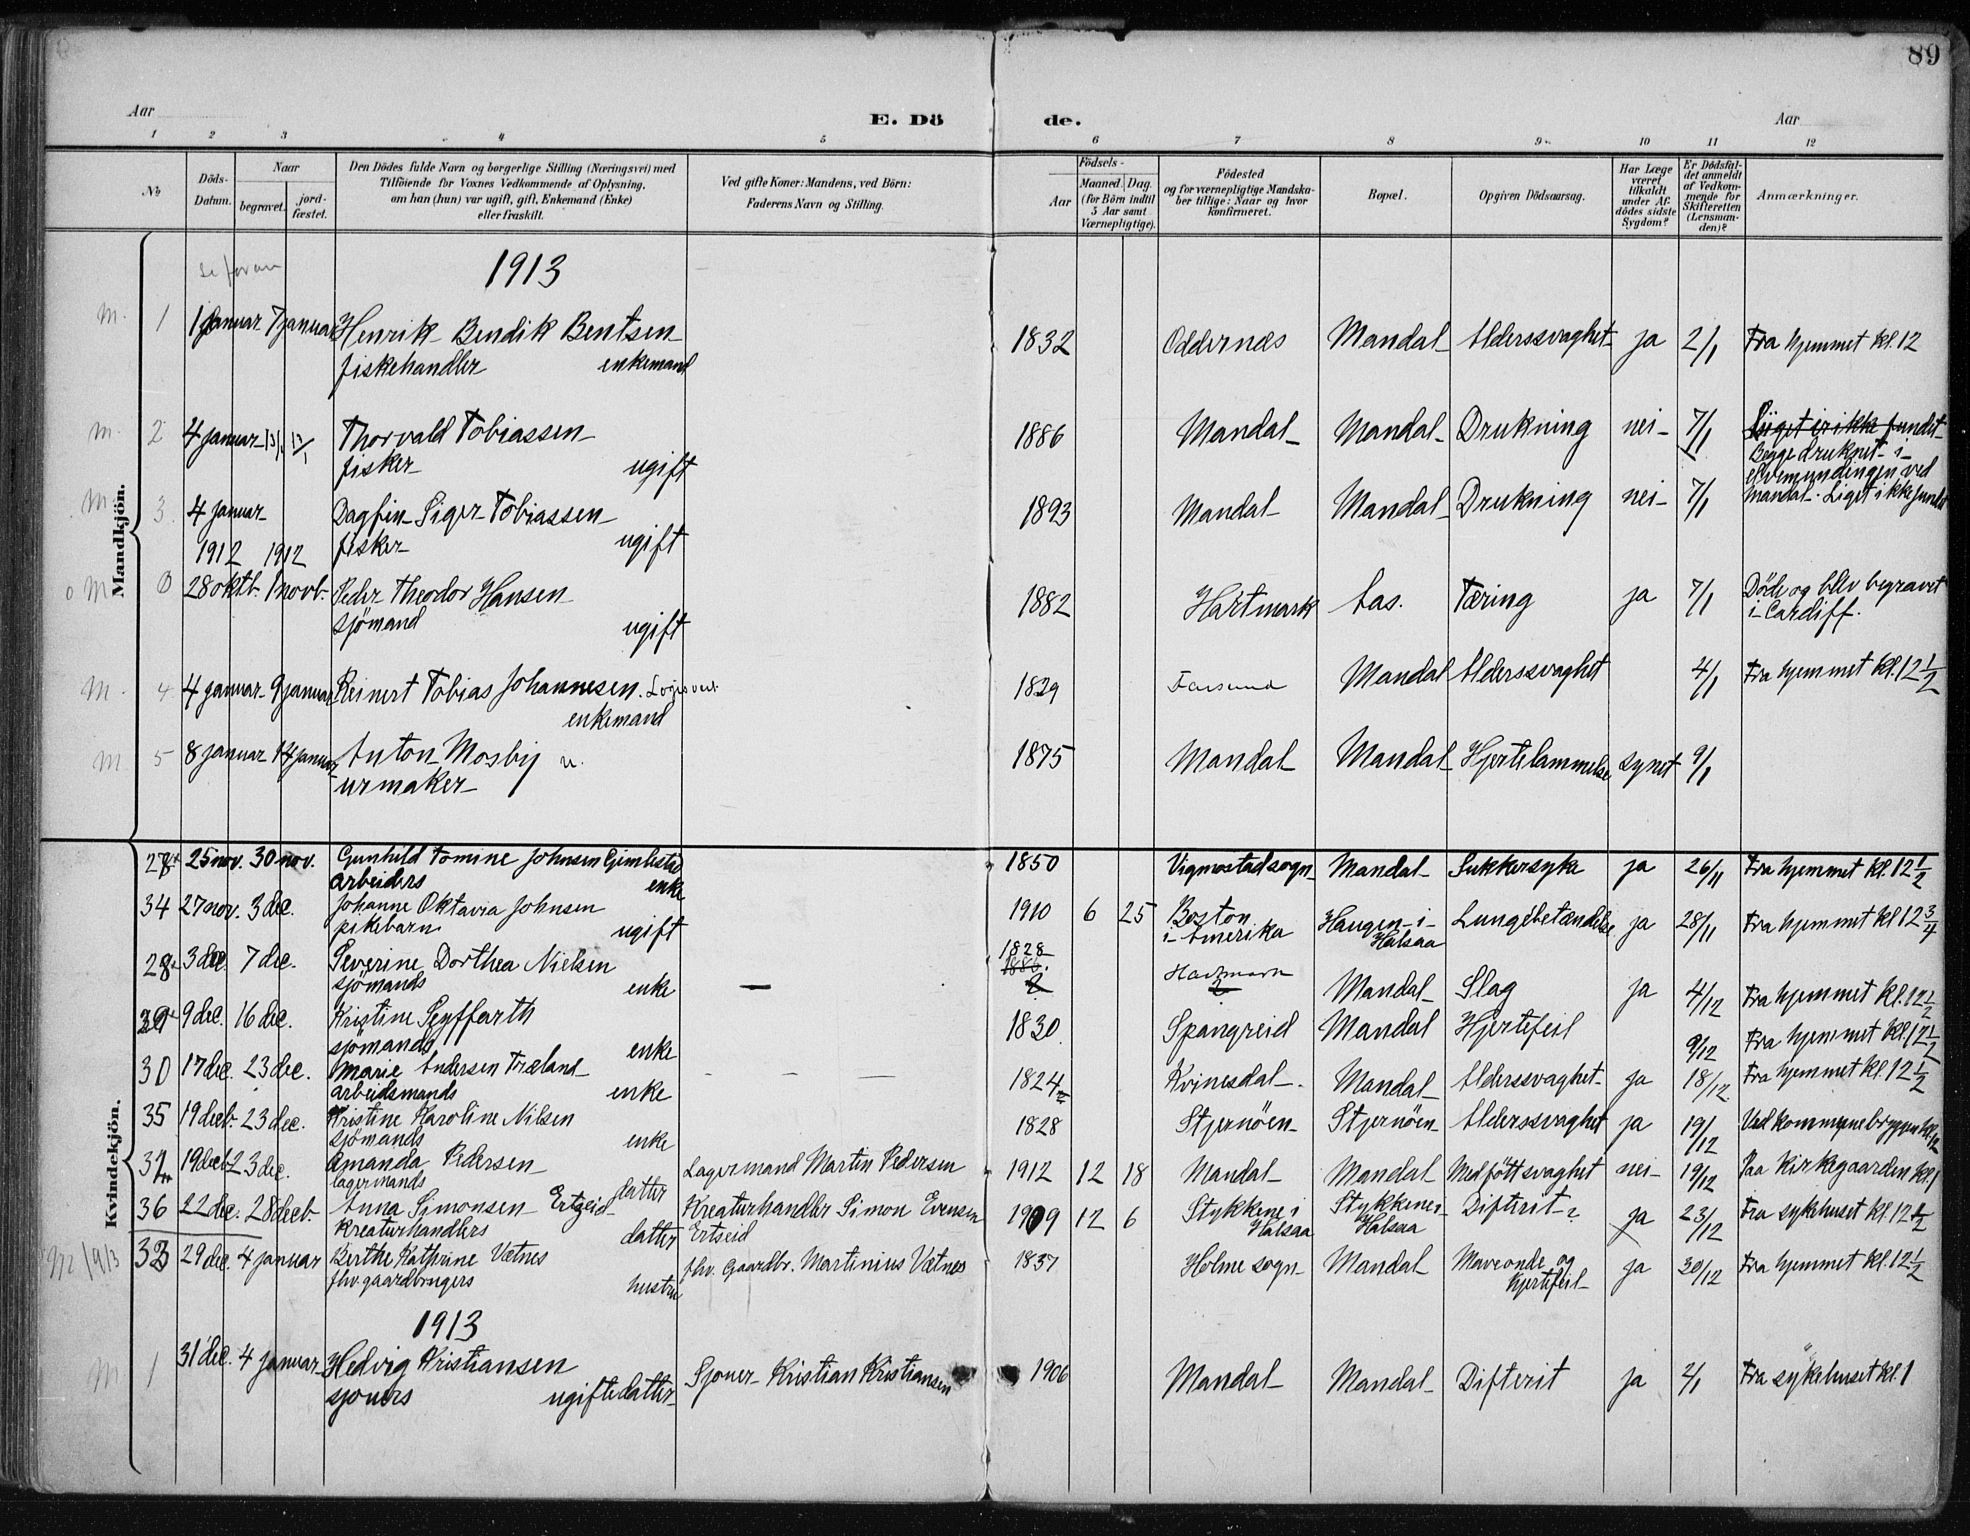 89
Aar
E. Dö de.
Aar
1 2 3 4 5 6 7 8 9 10 11 12
No
Döds-
Datum.
Naar
begravet.
jord-
fæstet.
Den Dödes fulde Navn og borgerlige Stilling (Næringsvei) med
Tilföiende for Voxnes Vedkommende af Oplysning,
om han (hun) var ugift, gift, Enkemand (Enke)
eller fraskilt.
Ved gifte Koner: Mandens, ved Börn:
Faderens Navn og Stilling.
Födsels-
Aar
Maaned. Dag.
(for Börn indtil
5 Aar samt
Værnepligtige).
Födested
og for værnepligtige Mandska-
ber tillige: Naar og hvor
konfirmeret.
Bopæl.
Opgiven Dödsaarsag.
Har Læge
været
tilkaldt
under Af-
dödes sidste
Sygdom?
Er Dödsfal-
det anmeldt
af Vedkom-
mende for
Skifteretten
(Lensman-
den)?
Anmærkninger.
Mandkjön.
se foran
1913
M. 1 1 januar 7 januar Henrik Bendik Bentsen 1832 Oddernes Mandal Alderssvaghet ja 2/1 Fra hjemmet kl. 12
fiskehandler enkemand
M. 2 4 januar 13/1 13/1 Thorvald Tobiassen 1886 Mandal Mandal Drukning nei 7/1 Liget er ikke fundet
fisker ugift Begge druknet i
elvemundingen ved
M. 3. 4 januar Dagfin Siger Tobiassen 1893 Mandal Mandal Drukning nei 7/1 Mandal. Liget ikke fundet
fisker ugift
1912 1912
o M 0 28 oktb. 1 novb. Peder Theodor Hansen 1882 Hartmark Aas. Tæring ja 7/1 Döde og blev begravet
sjömand ugift i Cardiff.
M. 4 4 januar 9 januar Reinert Tobias Johannesen. Logisvert. 1829 Farsund Mandal Alderssvaghet 4/1 Fra hjemmet kl. 12 1/2
enkemand
M 5 8 januar 14 januar Anton Mosby u. 1875 Mandal Mandal Hjertelammelse synet 9/1
urmaker
Kvindekjön.
25 nov. 30 nov. Gunhild Tomine Johnsen Gimlestad 1850 Vigmostad sogn Mandal Sukkersyke ja 26/11 Fra hjemmet kl. 12 1/2
arbeiders enke
34 27 nov. 3 dec. Johanne Oktavia Johnsen 1910 6 25 Boston Haugen i Lungebetændelse ja 28/11 Fra hjemmet kl 12 3/4
pikebarn ugift i Amerika Halsaa
28 3 dec. 7 dec. Severine Dorthea Nielsen 1828 Mandal Slag ja 4/12 Fra hjemmet kl. 12 1/2
sjömands enke
29 9 dec. 16 dec. Kristine Seyffarth 1830 Spangreid Mandal Hjertefeil 9/12 Fra hjemmet kl. 12 1/2
sjömands enke
30 17 dec. 23 dec. Marie Andersen Træland 1824 Kvinesdal Mandal Alderssvaghet ja 18/12 Fra hjemmet kl. 12 1/2
arbeidsmands enke
35 19 decb. 23 dec. Kristine Karoline Nilsen 1828 Stjernöen Stjernöen Alderssvaghet ja 19/12 Ved kommunebryggen kl. 12
sjömands enke
19 decb. 23 dec. Amanda Pedersen Lagermand Martin Pedersen 1912 12 18 Mandal Mandal Medföttsvaghet nei 19/12 Paa Kirkegaarden kl. 1
lagermands datter
36 22 dec. 28 decb. Anna Simonsen Ertzeid Kreaturhandler Simon Evensen 1909 12 6 Stykkene i Stykkene i Difterit ja 23/12 Fra sykehuset kl. 12 1/2
Kreaturhandlers datter Ertseid Halsaa Halsaa
M 1913 33 29 dec. 4 januar Berthe Kathrine Vatnes fhv. Gaardbr. Martinius Vatnes 1837 Holme sogn Mandal Maveonde og ja 30/12 Fra hjemmet kl. 12 1/2
fhv. gaardbrugers hustru hjertefeil
1913
M 1 31 dec. 4 januar Hedvig Kristiansen Sjouer Kristian Kristiansen 1906 Mandal Mandal Difterit ja 2/1 Fra sykehuset kl. 1
sjouers ugifte datter